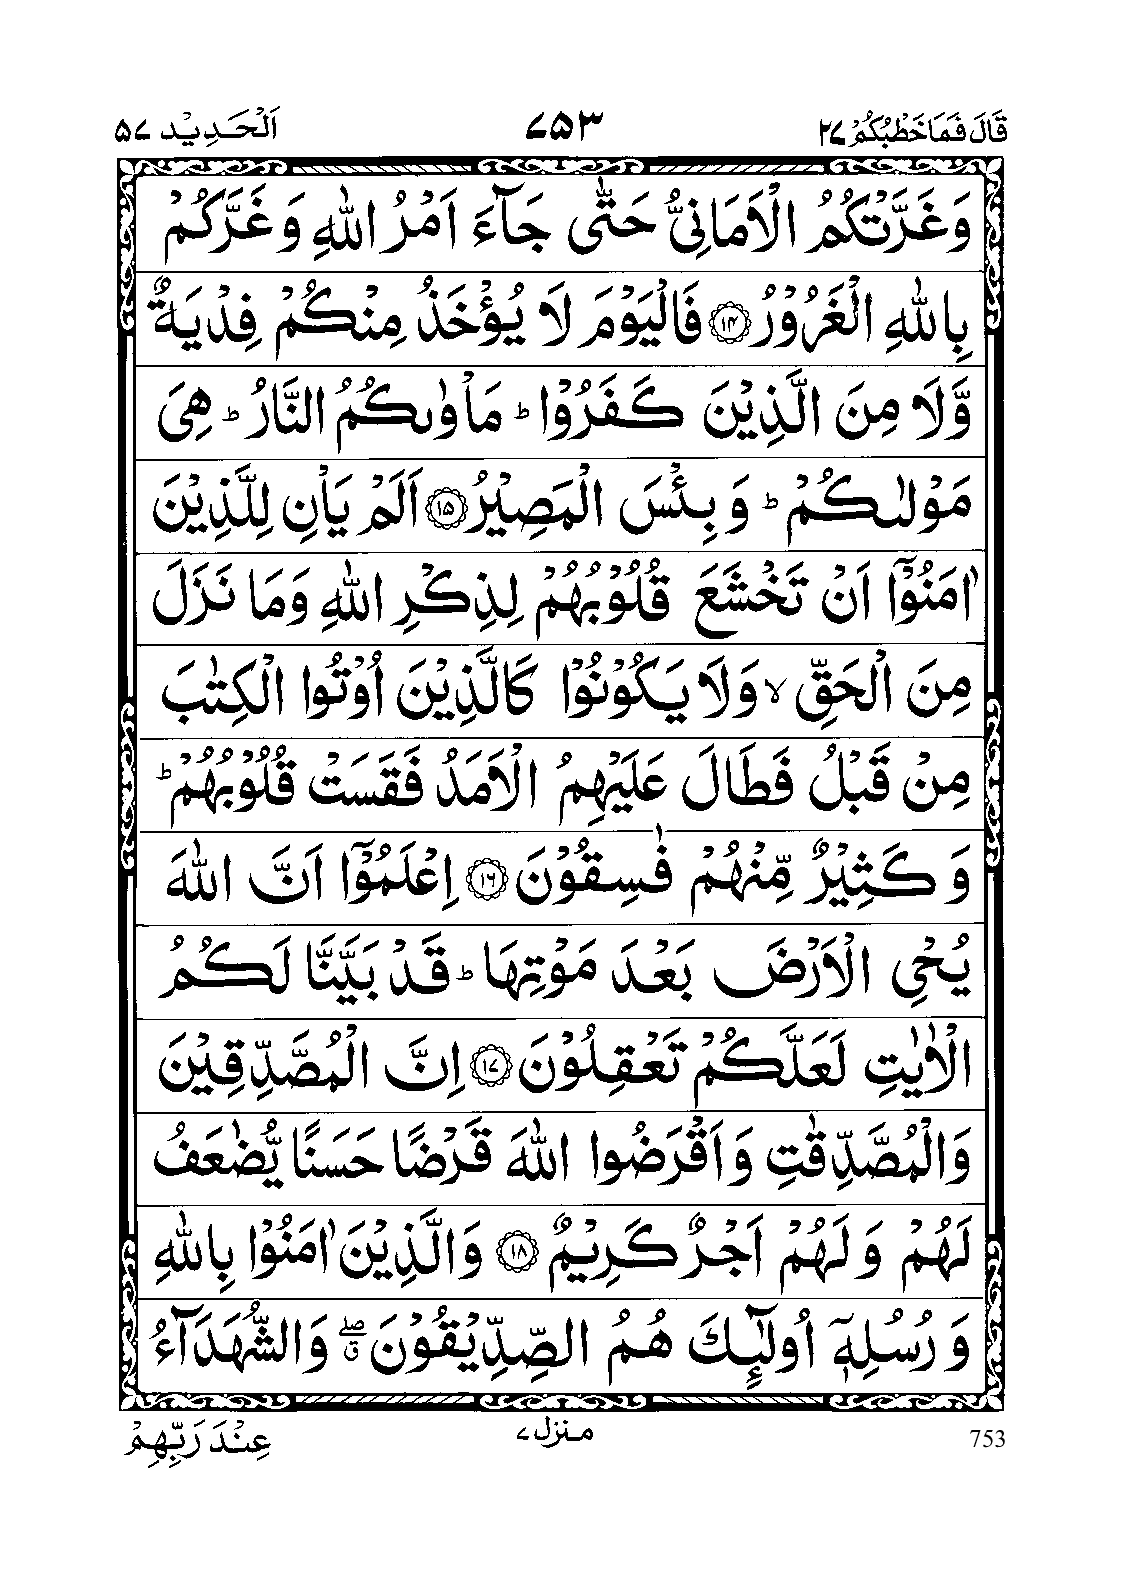 قَالَ فَمَا خَطْبُكُمْ ٢٧ ٧٥٣ اَلْحَدِيْد ٥٧
وَغَرَّتْكُمُ الْاَمَانِيُّ حَتّٰى جَآءَ اَمْرُ اللّٰهِ وَ غَرَّكُمْ
بِاللّٰهِ الْغَرُوْرُ ﴿١٤﴾ فَالْيَوْمَ لَا يُؤْخَذُ مِنْكُمْ فِدْيَةٌ
وَّلَا مِنَ الَّذِيْنَ كَفَرُوْا ؕ مَاْوٰىكُمُ النَّارُ ؕ هِيَ
مَوْلٰىكُمْ ؕ وَ بِئْسَ الْمَصِيْرُ ﴿١٥﴾ اَلَمْ يَاْنِ لِلَّذِيْنَ
اٰمَنُوْۤا اَنْ تَخْشَعَ قُلُوْبُهُمْ لِذِكْرِ اللّٰهِ وَمَا نَزَلَ
مِنَ الْحَقِّ ۙ وَلَا يَكُوْنُوْا كَالَّذِيْنَ اُوْتُوا الْكِتٰبَ
مِنْ قَبْلُ فَطَالَ عَلَيْهِمُ الْاَمَدُ فَقَسَتْ قُلُوْبُهُمْ ؕ
وَ كَثِيْرٌ مِّنْهُمْ فٰسِقُوْنَ ﴿١٦﴾ اِعْلَمُوْۤا اَنَّ اللّٰهَ
يُحْيِ الْاَرْضَ بَعْدَ مَوْتِهَا ؕ قَدْ بَيَّنَّا لَكُمُ
الْاٰيٰتِ لَعَلَّكُمْ تَعْقِلُوْنَ ﴿١٧﴾ اِنَّ الْمُصَّدِّقِيْنَ
وَالْمُصَّدِّقٰتِ وَ اَقْرَضُوا اللّٰهَ قَرْضًا حَسَنًا يُّضٰعَفُ
لَهُمْ وَ لَهُمْ اَجْرٌ كَرِيْمٌ ﴿١٨﴾ وَالَّذِيْنَ اٰمَنُوْا بِاللّٰهِ
وَ رُسُلِهٖۤ اُولٰٓئِكَ هُمُ الصِّدِّيْقُوْنَ ۖۗ وَالشُّهَدَآءُ
753 منزل ٧ عِنْدَ رَبِّهِمْ